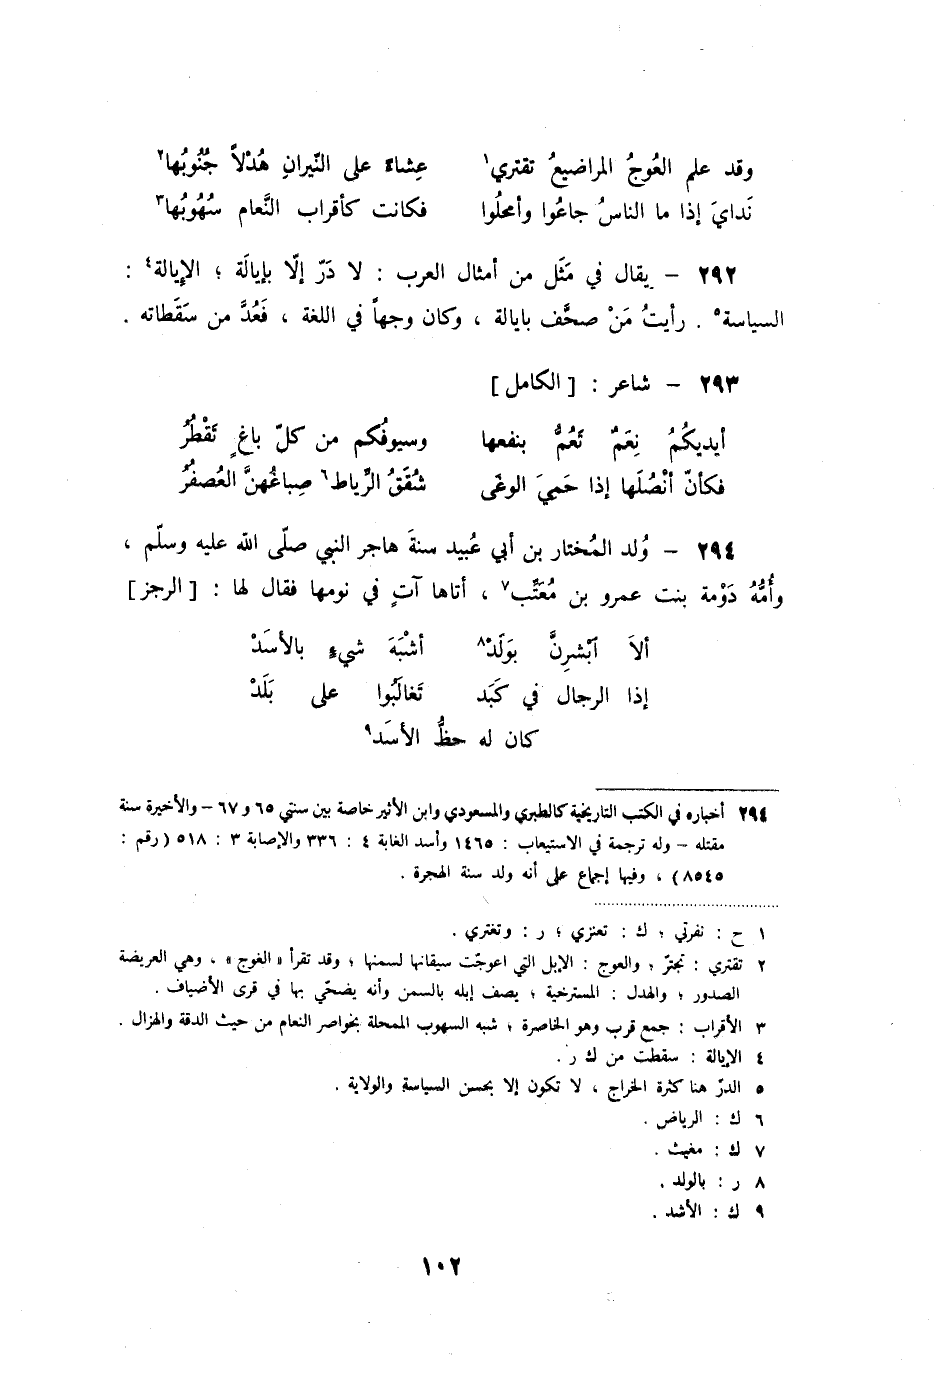 وقد علم العُوجُ المراضيعُ تقتري١ عِشاءً على النّيرانِ هُدْلاً جُنُوبُها٢
نَدايَ إذا ما الناسُ جاعُوا وأمحلُوا فكانت كأقراب النَّعام سُهُوبُها٣
٢٩٢ – يقال في مَثَل من أمثال العرب : لا دَرّ إلّا بإيالَة ؛ الإيالة٤ :
السياسة٥ . رأيتُ مَنْ صحَّف بايالة ، وكان وجهاً في اللغة ، فَعُدَّ من سَقَطاته .
٢٩٣ – شاعر : [ الكامل ]
أيديكُمُ نِعَمٌ تَعُمُّ بنفعها وسيوفُكم من كلّ باغٍ تَقْطُرُ
فكأنّ أنْصُلَها إذا حَمِيَ الوغَى شُقَقُ الرِّياط٦ صِباغُهنَّ العُصفُرُ
٢٩٤ – وُلد المُختار بن أبي عُبيد سنةَ هاجر النبي صلّى الله عليه وسلّم ،
وأُمُّهُ دَوْمة بنت عمرو بن مُعَتِّب٧ ، أتاها آتٍ في نومها فقال لها : [ الرجز ]
ألاَ آبْشرِنَّ بوَلَدْ٨ أشْبَهَ شيءٍ بالأسَدْ
إذا الرجال في كَبَد تَغالَبُوا على بَلَدْ
كان له حظُّ الأسَد٩
٢٩٤ أخباره في الكتب التاريخية كالطبري والمسعودي وابن الأثير خاصة بين سنتي ٦٥ و ٦٧ – والأخيرة سنة
مقتله – وله ترجمة في الاستيعاب : ١٤٦٥ وأسد الغابة ٤ : ٣٣٦ والإصابة ٣ : ٥١٨ ( رقم :
٨٥٤٥ ) ، وفيها إجماع على أنه ولد سنة الهجرة .
١ ح : نفرتي ؛ ك : تعنزي ؛ ر : وتغتري .
٢ تقتري : تجترّ ؛ والعوج : الإبل التي اعوجّت سيقانها لسمنها ؛ وقد تقرأ « الغوج » ، وهي العريضة
الصدور ؛ والهدل : المسترخية ؛ يصف إبله بالسمن وأنه يضحّي بها في قرى الأضياف .
٣ الأقراب : جمع قرب وهو الخاصرة ؛ شبه السهوب الممحلة بخواصر النعام من حيث الدقة والهزال .
٤ الإيالة : سقطت من ك ر .
٥ الدرّ هنا كثرة الخراج ، لا تكون إلا بحسن السياسة والولاية .
٦ ك : الرياض .
٧ ك : مغيث .
٨ ر : بالولد .
٩ ك : الأشد .
١٠٢